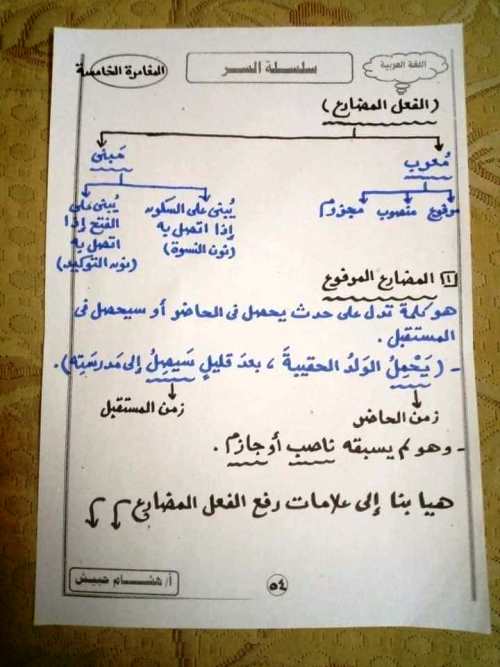 اللغة العربية
سلسلة السر
المغامرة الخامسة
(الفعل المضارع)
مُعرب
مَبنى
مرفوع منصوب مجزوم
يُبنى على السكون
إذا اتصل به
(نون النسوة)
يُبنى على
الفتح إذا
اتصل به
(نون التوكيد)
١ المضارع المرفوع
هو كلمة تدل على حدث يحصل فى الحاضر أو سيحصل فى
المستقبل.
- (يَحْمِلُ الوَلدُ الحقيبةَ ، بعدَ قليلٍ سَيصِلُ إلى مَدرسَتِه).
زمن الحاضر
زمن المستقبل
- وهو لم يسبقه ناصب أو جازم.
هيا بنا إلى علامات رفع الفعل المضارع
٥٤
أ/ هشام حبيش